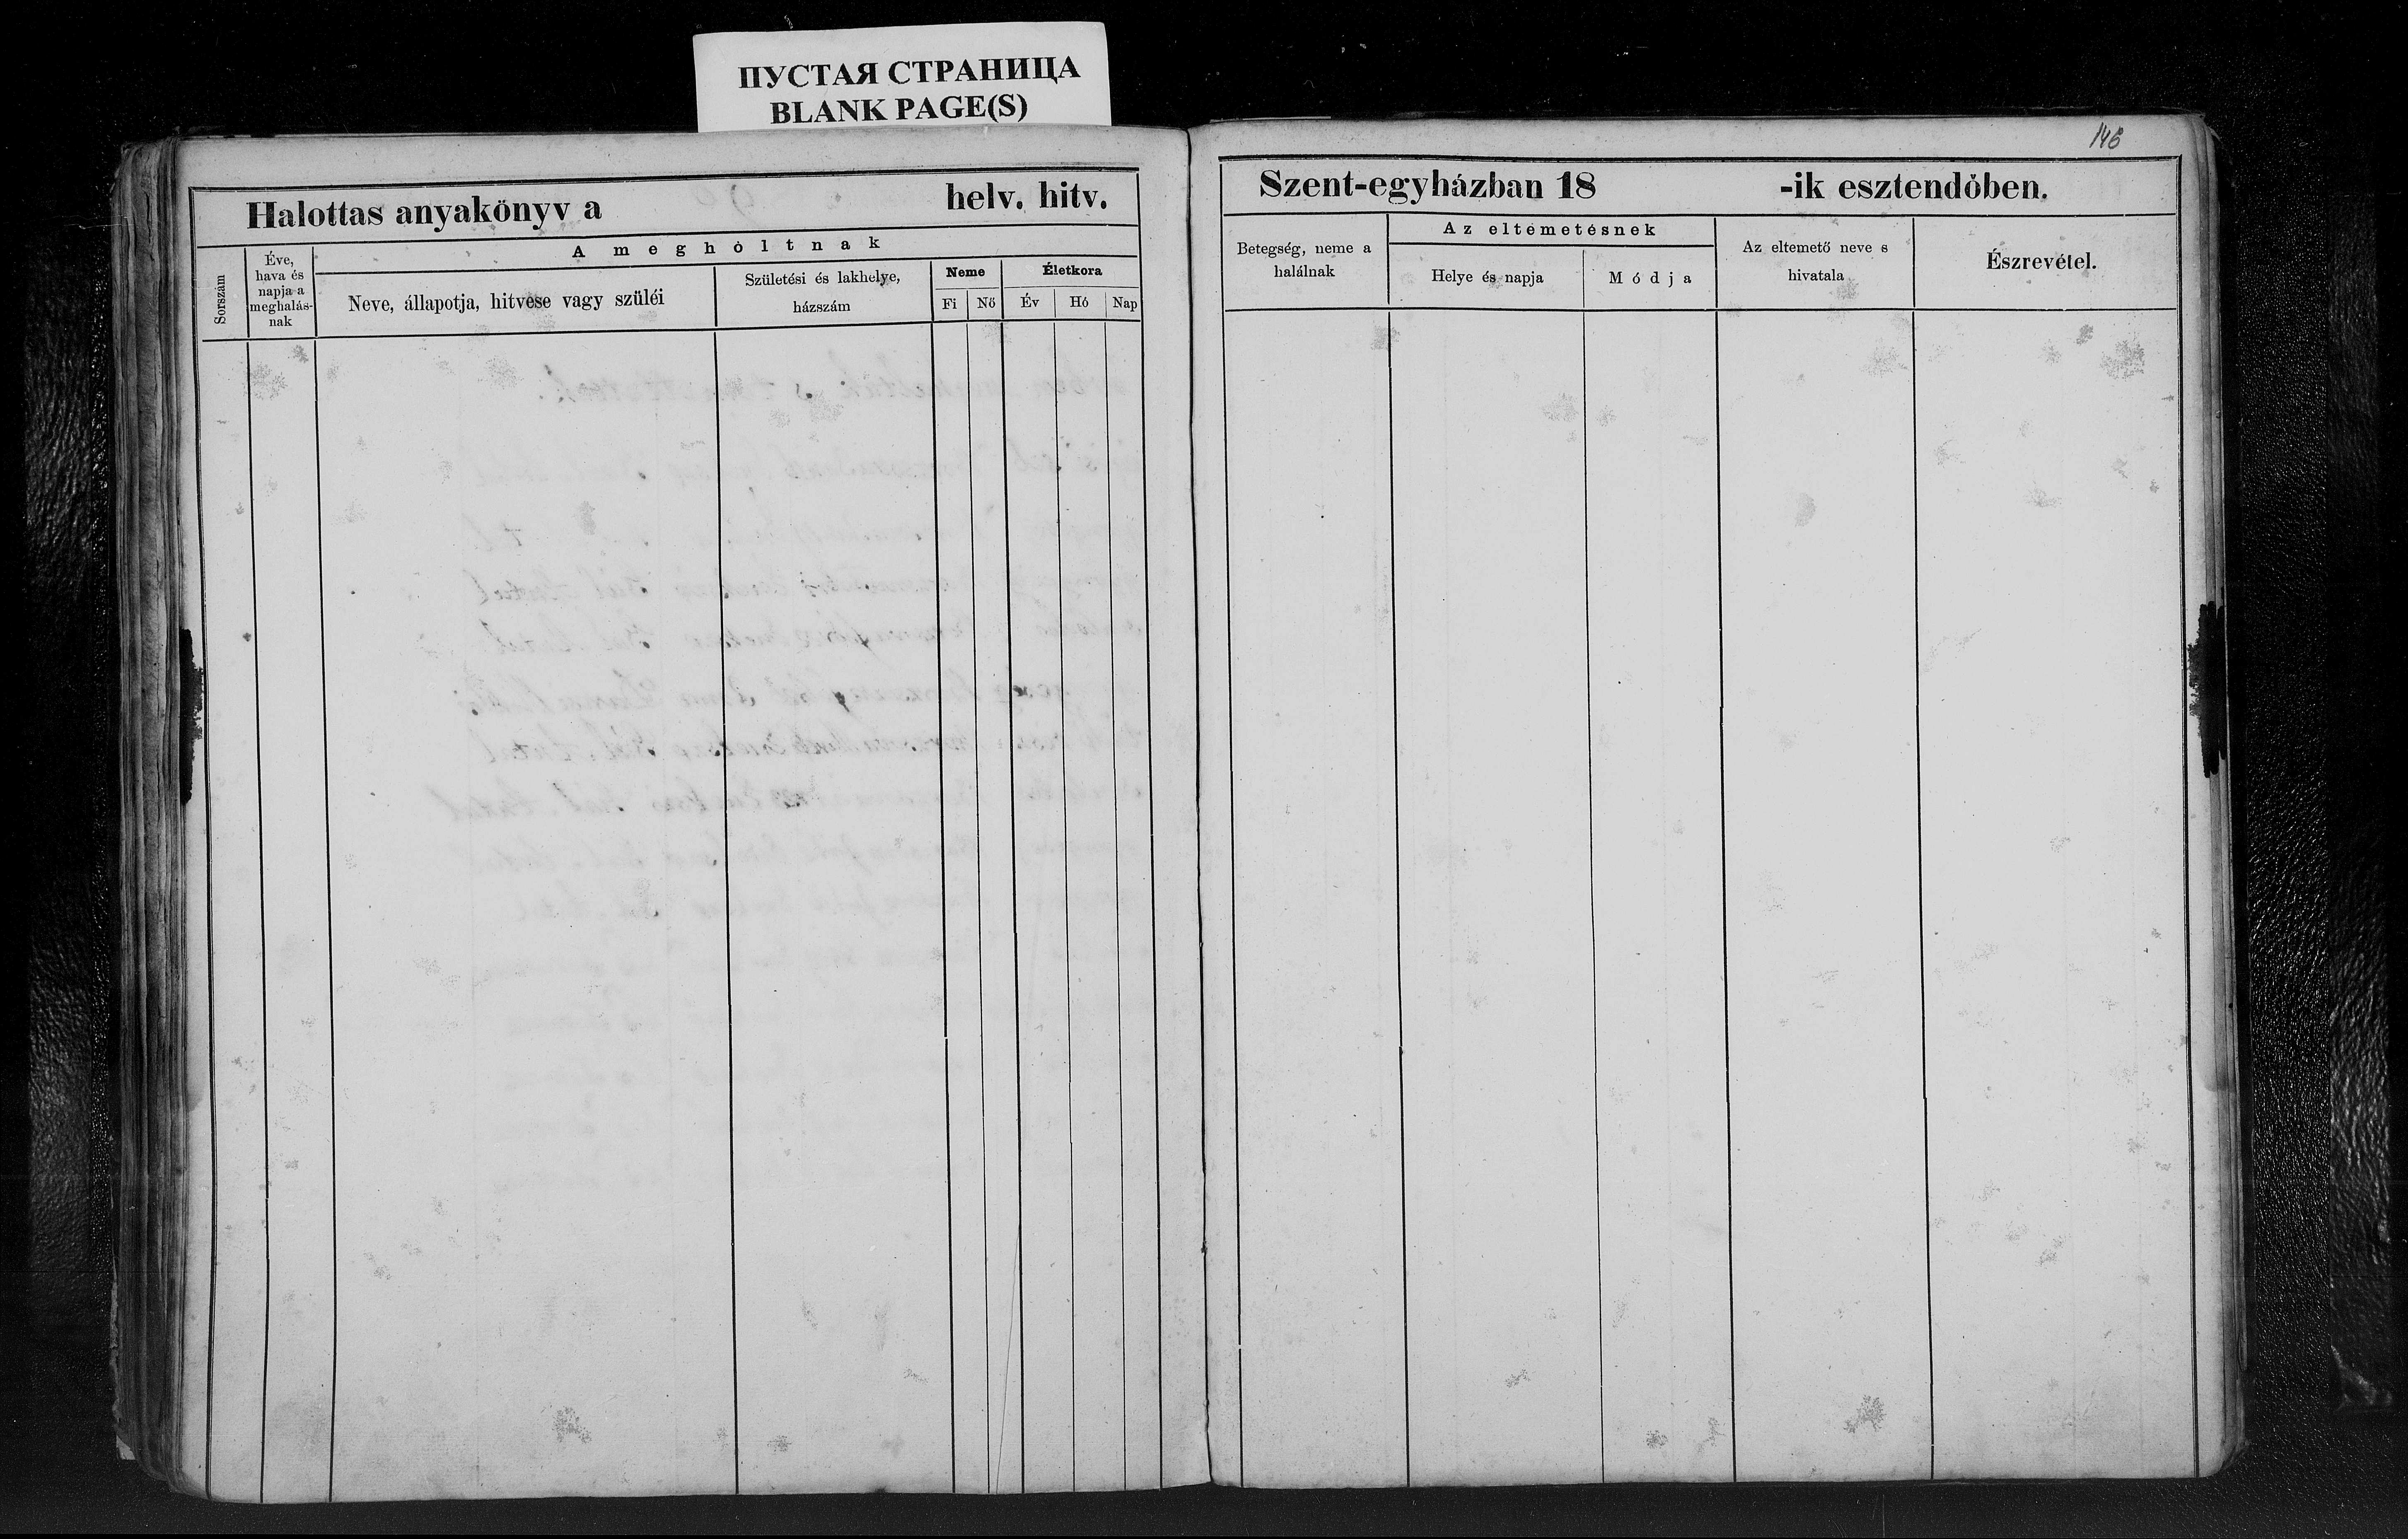 ПУСТАЯ СТРАНИЦА
BLANK PAGE(S)
146
Halottas anyakönyv a helv. hitv.
Sorszám
Éve,
hava és
napja a
meghalás-
nak
A meghóltnak
Neve, állapotja, hitvese vagy szüléi
Születési és lakhelye,
házszám
Neme
Fi Nő
Életkora
Év Hó Nap
Szent-egyházban 18 -ik esztendőben.
Betegség, neme a
halálnak
Az eltemetésnek
Helye és napja
Módja
Az eltemető neve s
hivatala
Észrevétel.